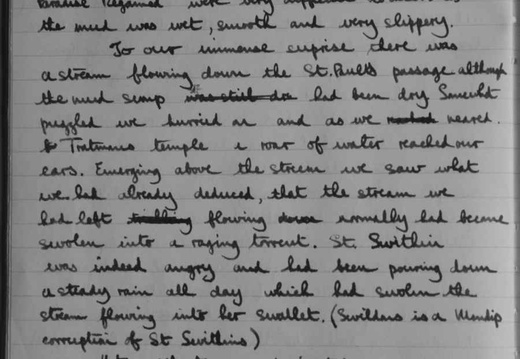 Paradise Regained were very
the mud was wet, smooth and very slippery.
To our immense suprise there was
a stream flowing down the St. Paul's passage although
the mud sump was still dr had been dry Somewhat
puzzled we hurried on and as we neared
Tratmans temple a roar of water reached our
ears. Emerging above the stream we saw what
we had already deduced, that the stream we
had left trickling flowing down normally had become
swolen into a raging torrent. St. Swithin
was indeed angry and had been pouring down
a steady rain all day which had swolen the
stream flowing into her swallet. (Swildons is a Mendip
corruption of St Swithins)